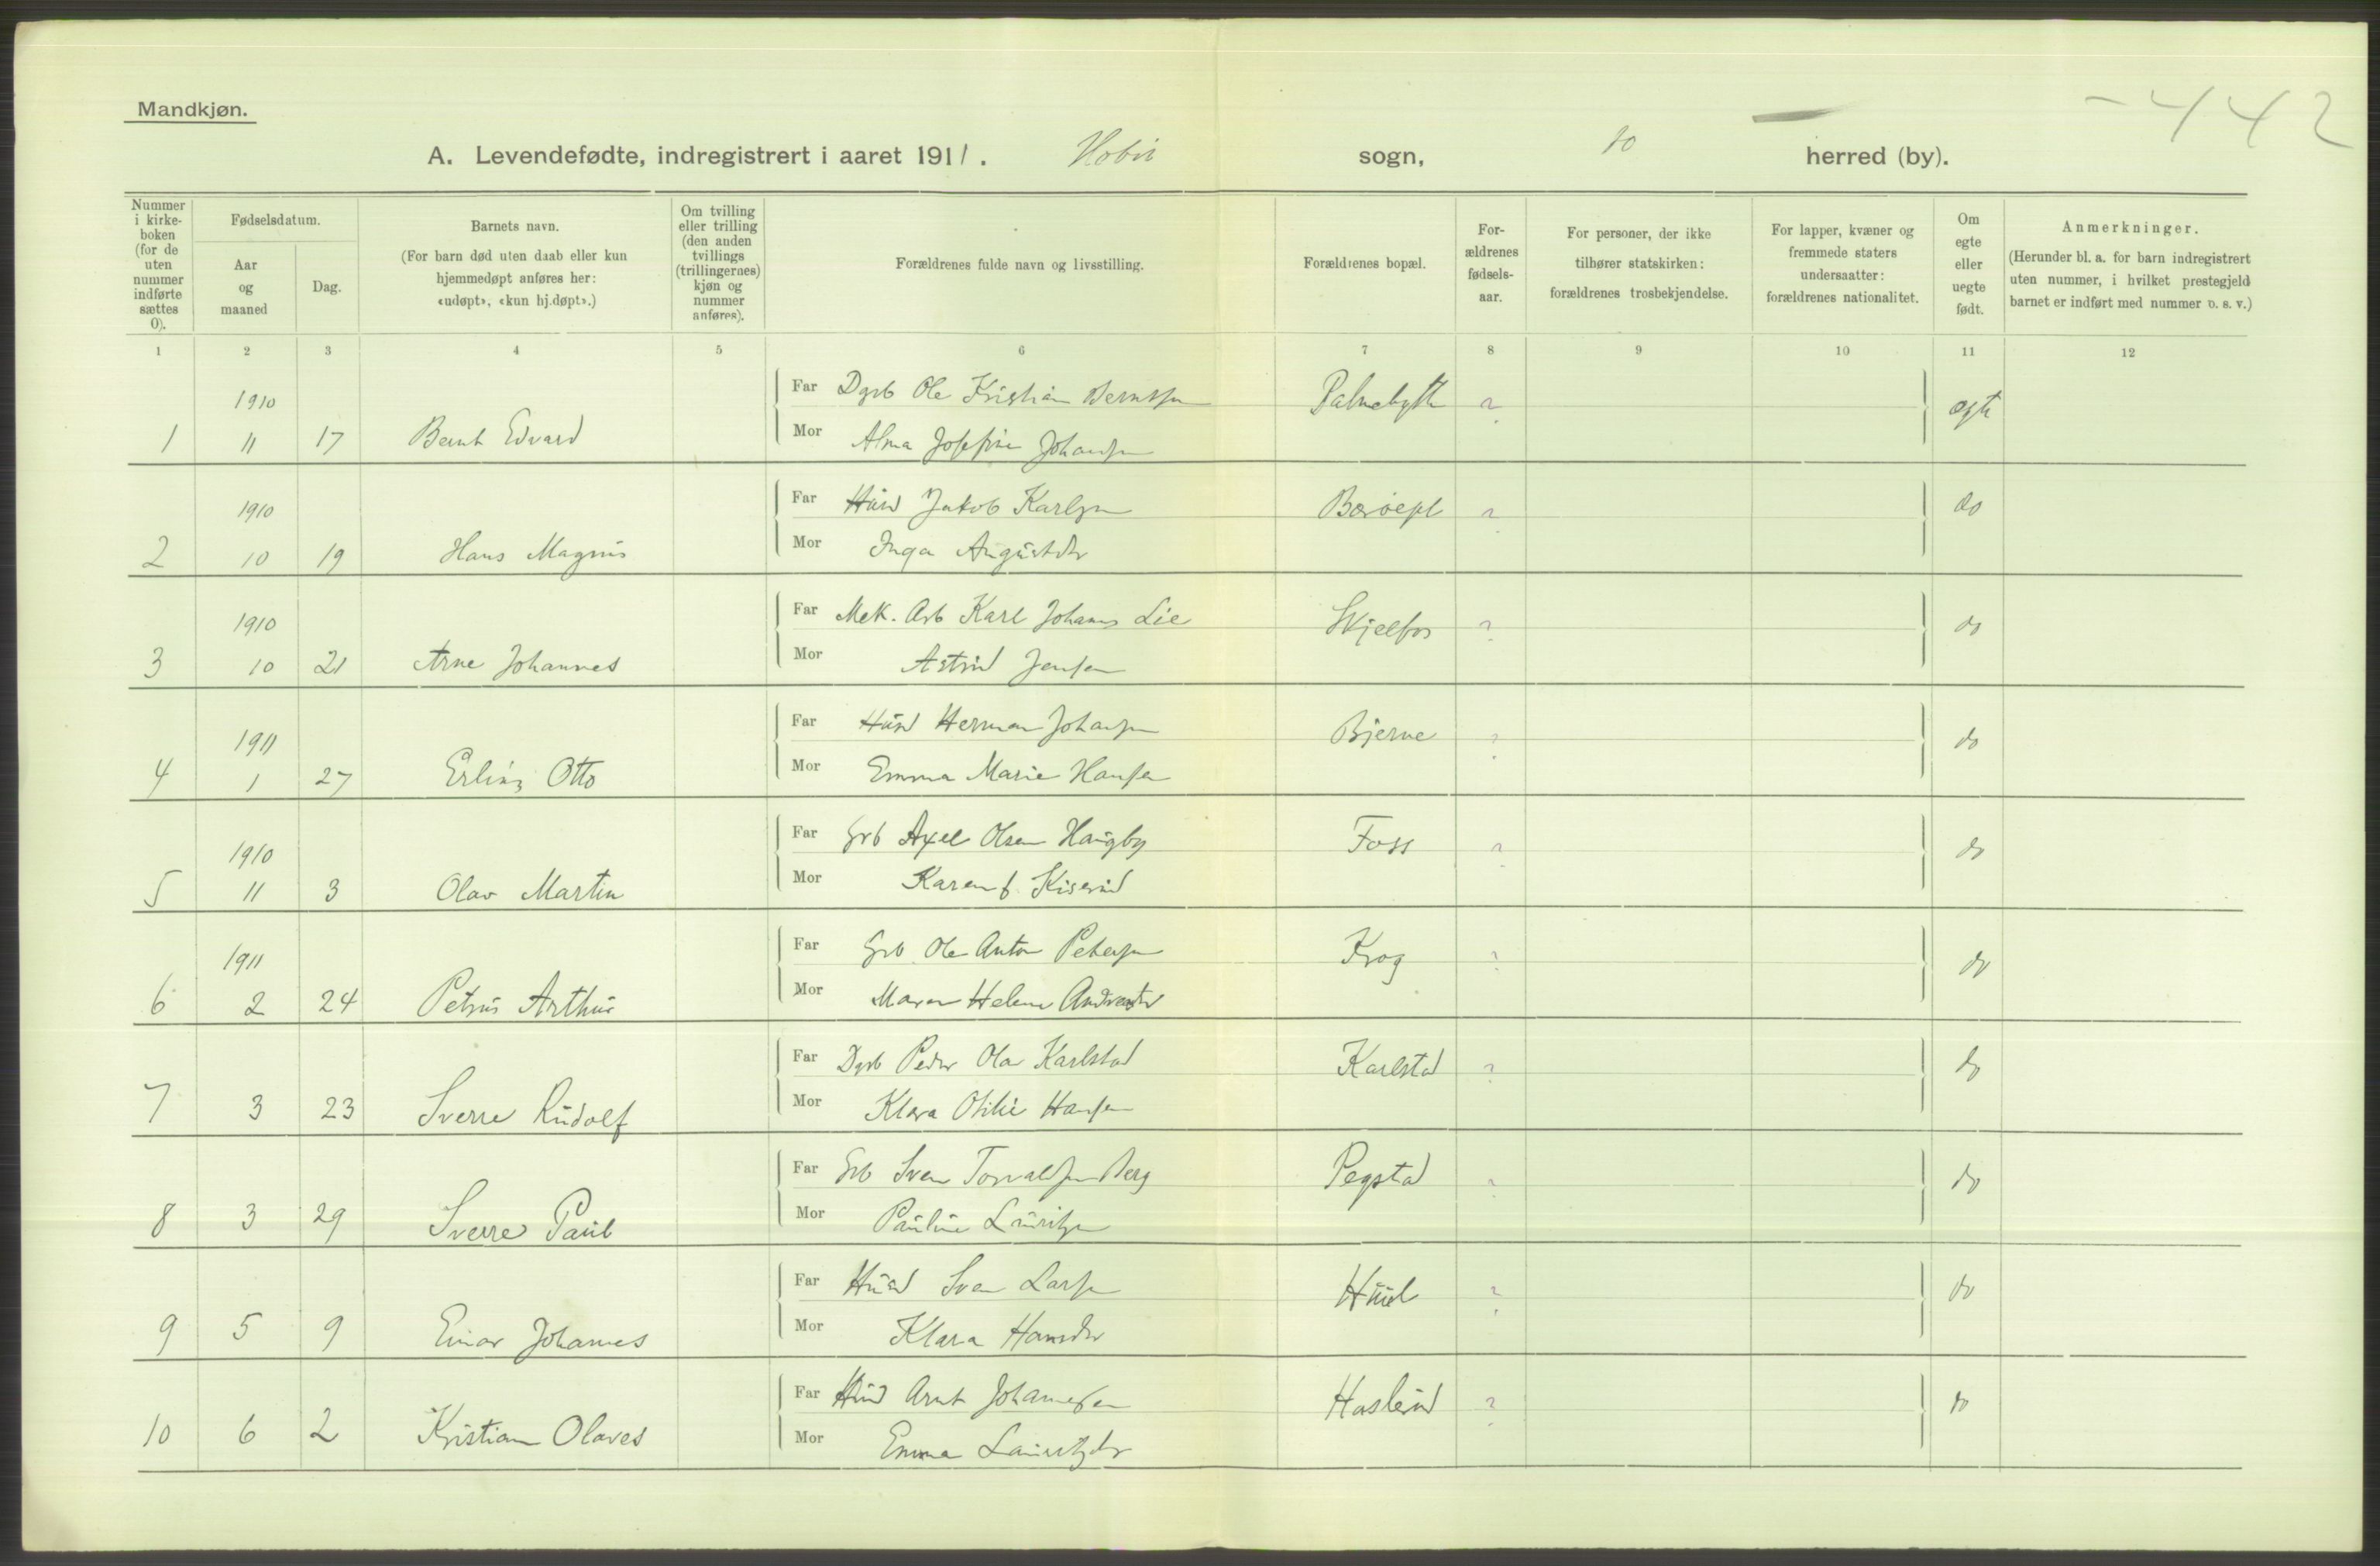 Mandkjøn.
-442
A. Levendefødte, indregistrert i aaret 1911. Hobøl sogn, do herred (by).
Nummer i kirkeboken (for de uten nummer indførte sættes 0).
Fødselsdatum.
Aar og maaned
Dag.
Barnets navn.
(For barn død uten daab eller kun hjemmedøpt anføres her: «udøpt», «kun hj.døpt».)
Om tvilling eller trilling (den anden tvillings (trillingernes) kjøn og nummer anføres).
Forældrenes fulde navn og livsstilling.
Forældrenes bopæl.
Forældrenes fødselsaar.
For personer, der ikke tilhører statskirken: forældrenes trosbekjendelse.
For lapper, kvæner og fremmede staters undersaatter: forældrenes nationalitet.
Om egte eller uegte født.
Anmerkninger.
(Herunder bl. a. for barn indregistrert uten nummer, i hvilket prestegjeld barnet er indført med nummer o. s. v.)
1 2 3 4 5 6 7 8 9 10 11 12
1910
1 11 17 Bernt Edvard
Far Dgrb Ole Kristian Berntsen ? egte
Mor Alma Josefine Johansen
1910
2 10 19 Hans Magnus
Far Husm Jakob Karlsen ? do
Mor Inga Augustdr
1910
3 10 21 Arne Johannes
Far Mek. Arb Karl Johannes Lie Skjelfos ? do
Mor Astrid Jensen
1911
4 1 27 Erling Otto
Far Husm Herman Johansen Bjerke ? do
Mor Emma Marie Hansen
1910
5 11 3 Olav Martin
Far Grb Axel Olsen Haugby Foss ? do
Mor Karen f. Kiserud
1911
6 2 24 Petrus Arthur
Far Grb Ole Anton Petersen Krog ? do
Mor Maren Helene Andreasdtr
7 3 23 Sverre Rudolf
Far Dgrb Peder Olav Karlstad Karlstad ? do
Mor Klara Otilie Hansen
8 3 29 Sverre Paul
Far Grb Sven Torvaldsen Berg Pegstad ? do
Mor Pauline Lauritzen
9 5 9 Einar Johannes
Far Husm Sven Larsen ? do
Mor Klara Hansdtr
10 6 2 Kristian Olaves
Far Husm Arnt Johannesen Haslerud ? do
Mor Emma Lauritzdr